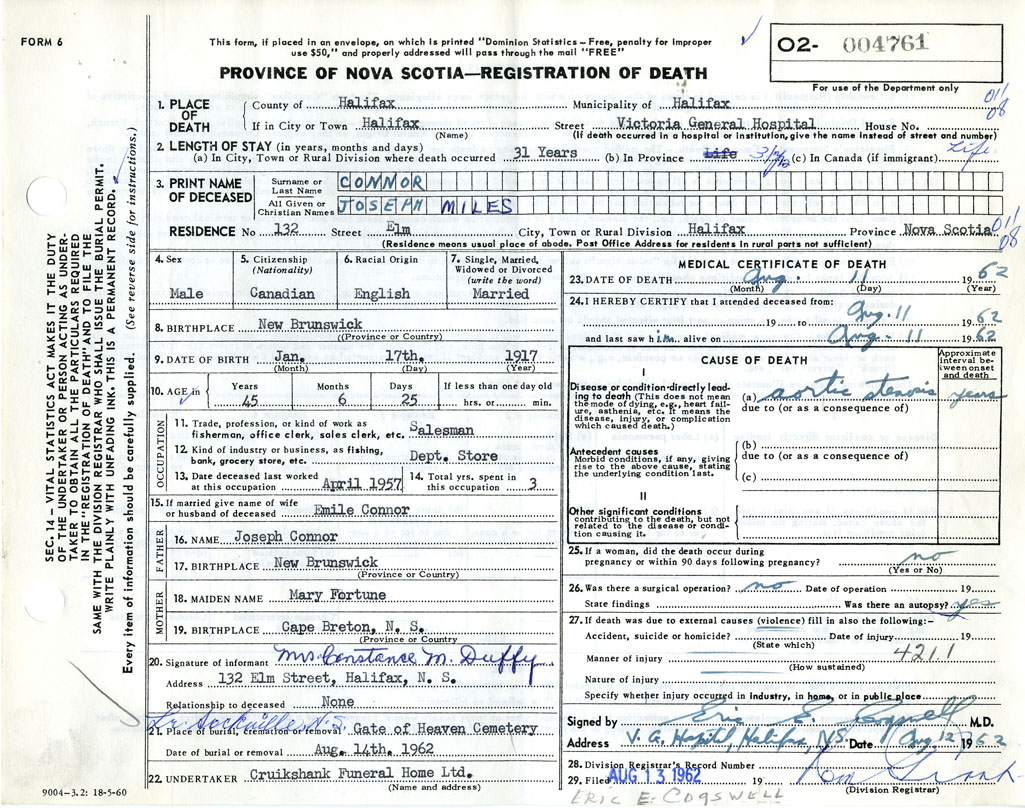 FORM 6
This form, if placed in an envelope, on which is printed "Dominion Statistics—Free, penalty for improper
use $50," and properly addressed will pass through the mail "FREE"
O2- 004761
For use of the Department only
PROVINCE OF NOVA SCOTIA—REGISTRATION OF DEATH
SEC. 14 – VITAL STATISTICS ACT MAKES IT THE DUTY
OF THE UNDERTAKER OR PERSON ACTING AS UNDER-
TAKER TO OBTAIN ALL THE PARTICULARS REQUIRED
IN THE "REGISTRATION OF DEATH" AND TO FILE THE
SAME WITH THE DIVISION REGISTRAR WHO SHALL ISSUE THE BURIAL PERMIT.
WRITE PLAINLY WITH UNFADING INK. THIS IS A PERMANENT RECORD.
Every item of information should be carefully supplied. (See reverse side for instructions.)
1. PLACE OF DEATH County of Halifax Municipality of Halifax 011/08
If in City or Town Halifax Street Victoria General Hospital House No.
(Name) (If death occurred in a hospital or institution, give the name instead of street and number)
2. LENGTH OF STAY (in years, months and days)
(a) In City, Town or Rural Division where death occurred 31 Years (b) In Province Life (c) In Canada (if immigrant) Life
3. PRINT NAME OF DECEASED Surname or Last Name CONNOR
All Given or Christian Names JOSEPH MILES
RESIDENCE No 132 Street Elm City, Town or Rural Division Halifax Province Nova Scotia 011/08
(Residence means usual place of abode. Post Office Address for residents in rural parts not sufficient)
4. Sex 5. Citizenship (Nationality) 6. Racial Origin 7. Single, Married, Widowed or Divorced (write the word)
Male Canadian English Married
8. BIRTHPLACE New Brunswick
((Province or Country)
9. DATE OF BIRTH Jan. 17th. 1917
(Month) (Day) (Year)
10. AGE in Years Months Days If less than one day old
45 6 25 hrs. or min.
OCCUPATION
11. Trade, profession, or kind of work as
fisherman, office clerk, sales clerk, etc. Salesman
12. Kind of industry or business, as fishing,
bank, grocery store, etc. Dept. Store
13. Date deceased last worked at this occupation April 1957 14. Total yrs. spent in this occupation 3
15. If married give name of wife
or husband of deceased Emile Connor
FATHER
16. NAME Joseph Connor
17. BIRTHPLACE New Brunswick
(Province or Country)
MOTHER
18. MAIDEN NAME Mary Fortune
19. BIRTHPLACE Cape Breton, N. S.
(Province or Country
20. Signature of informant Mrs Constance M. Duffy
Address 132 Elm Street, Halifax, N. S.
Relationship to deceased None
Lr. Sackville, N.S.
21. Place of burial, cremation or removal Gate of Heaven Cemetery
Date of burial or removal Aug. 14th. 1962
22. UNDERTAKER Cruikshank Funeral Home Ltd.
(Name and address)
9004–3.2: 18-5-60
MEDICAL CERTIFICATE OF DEATH
23. DATE OF DEATH Aug. 11 1962
(Month) (Day) (Year)
24. I HEREBY CERTIFY that I attended deceased from:
Aug. 11
19 to 1962
and last saw him alive on Aug - 11 1962
CAUSE OF DEATH
Approximate interval between onset and death
I
Disease or condition directly lead-
ing to death (This does not mean
the mode of dying, e.g., heart fail-
ure, asthenia, etc. It means the
disease, injury, or complication
which caused death.)
(a) aortic stenosis years
due to (or as a consequence of)
Antecedent causes
Morbid conditions, if any, giving
rise to the above cause, stating
the underlying condition last.
(b)
due to (or as a consequence of)
(c)
II
Other significant conditions
contributing to the death, but not
related to the disease or condi-
tion causing it.
25. If a woman, did the death occur during
pregnancy or within 90 days following pregnancy? no
(Yes or No)
26. Was there a surgical operation? no Date of operation 19
State findings Was there an autopsy? yes
27. If death was due to external causes (violence) fill in also the following:–
Accident, suicide or homicide? Date of injury 19
(State which)
Manner of injury 421.1
(How sustained)
Nature of injury
Specify whether injury occurred in industry, in home, or in public place
Signed by Eric E. Cogswell M.D.
Address V. G. Hospital, Halifax, N.S. Date Aug 12 1962
28. Division Registrar's Record Number
29. Filed AUG 13 1962 19
(Division Registrar)
ERIC E. COGSWELL